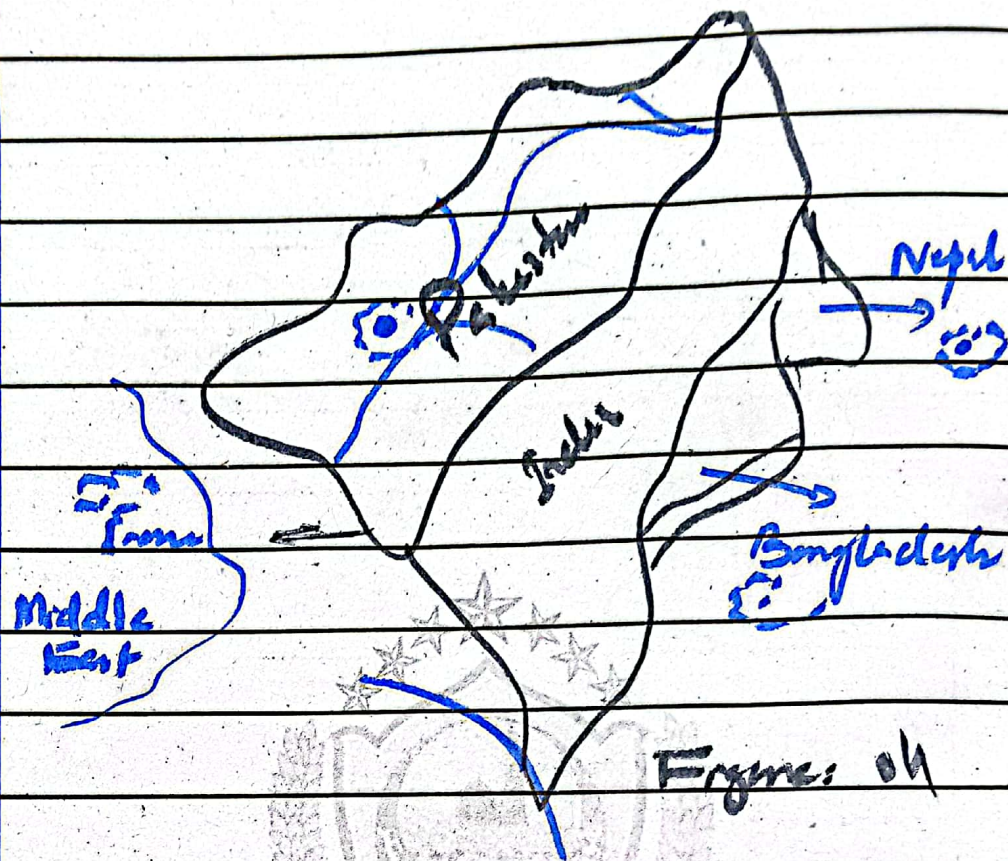 Pakistan
Nepal
India
Bangladesh
Middle
East
Figure: 04